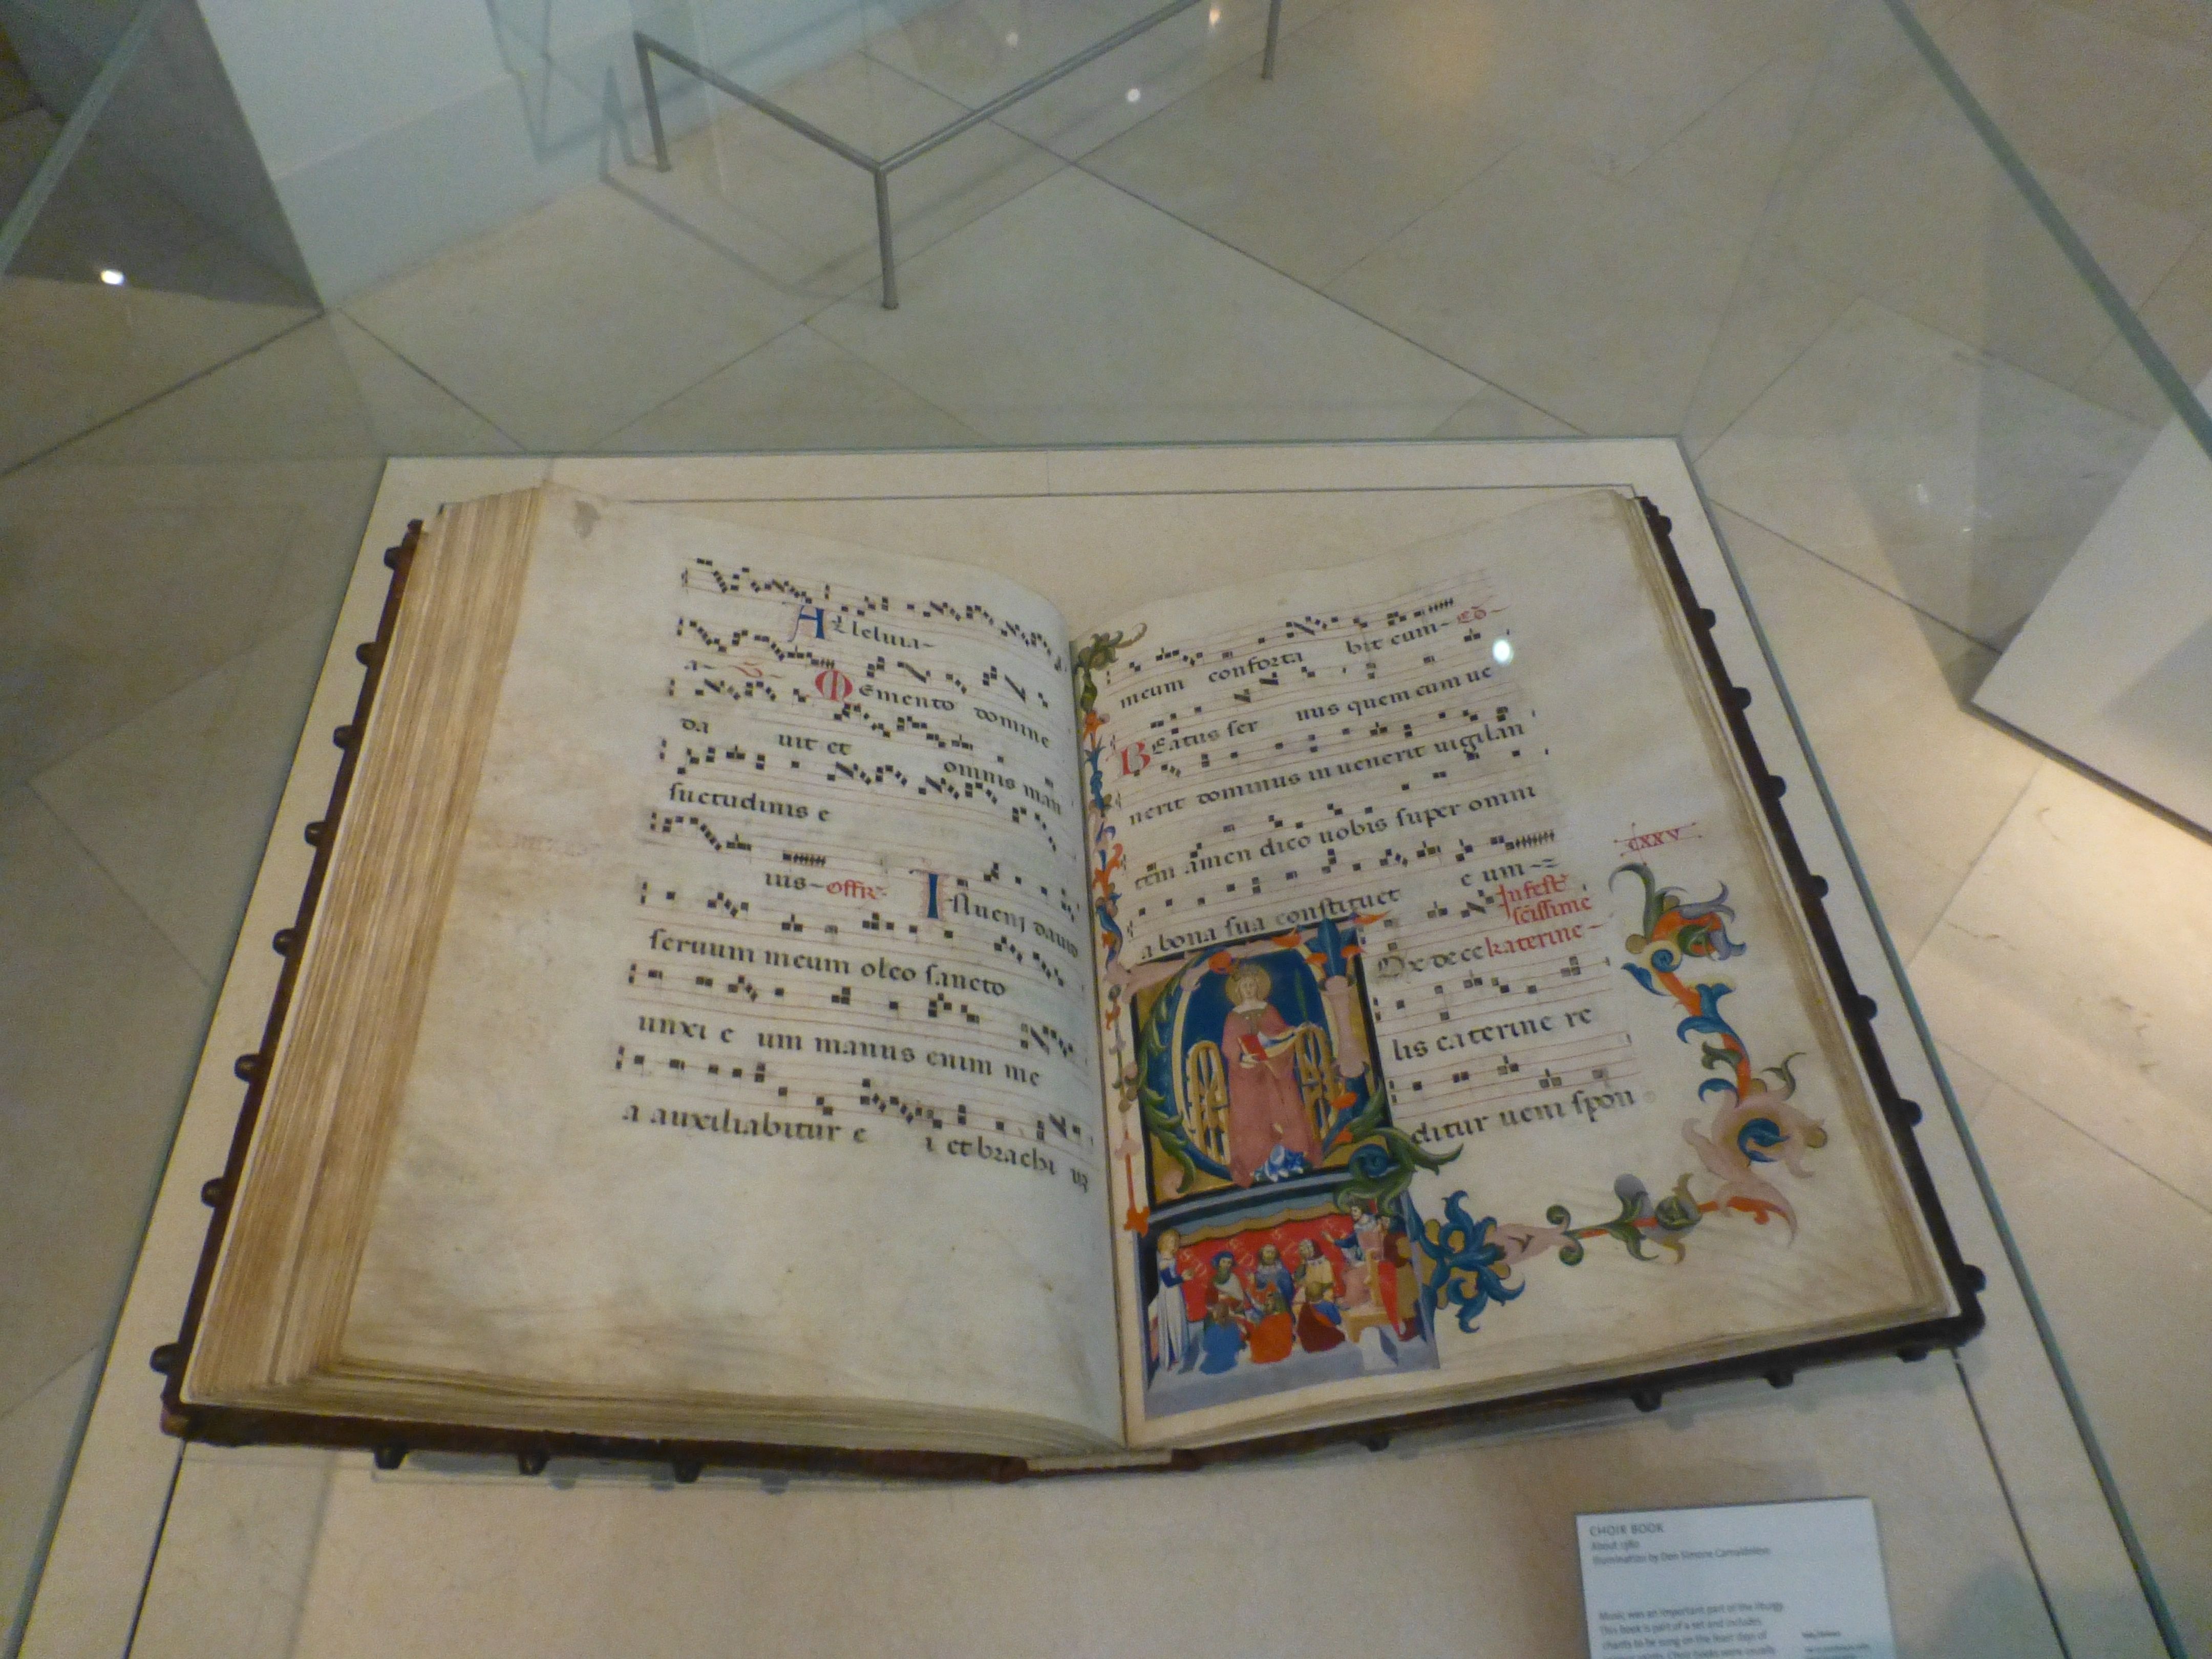 Alleluia-
a- Memento domine
da uit et
omnis man
suetudinis e
ius- Offr- Inueni dauid
seruum meum oleo sancto
unxi e um manus enim me
a auxiliabitur e i et brachi
meum conforta bit eum- Co-
Beatus ser uus quem cum ue
nerit dominus in uenerit uigilan
tem amen dico uobis super omni
a bona sua constituet e um-
CXXV
In fest
scissime
Ox de ce katerine-
lis caterine re
ditur ueni spon
CHOIR BOOK
About
Illumination by Don Simone Camaldolese
Music was an important part of the liturgy.
This book is part of a set and includes
chants to be sung on the feast days of